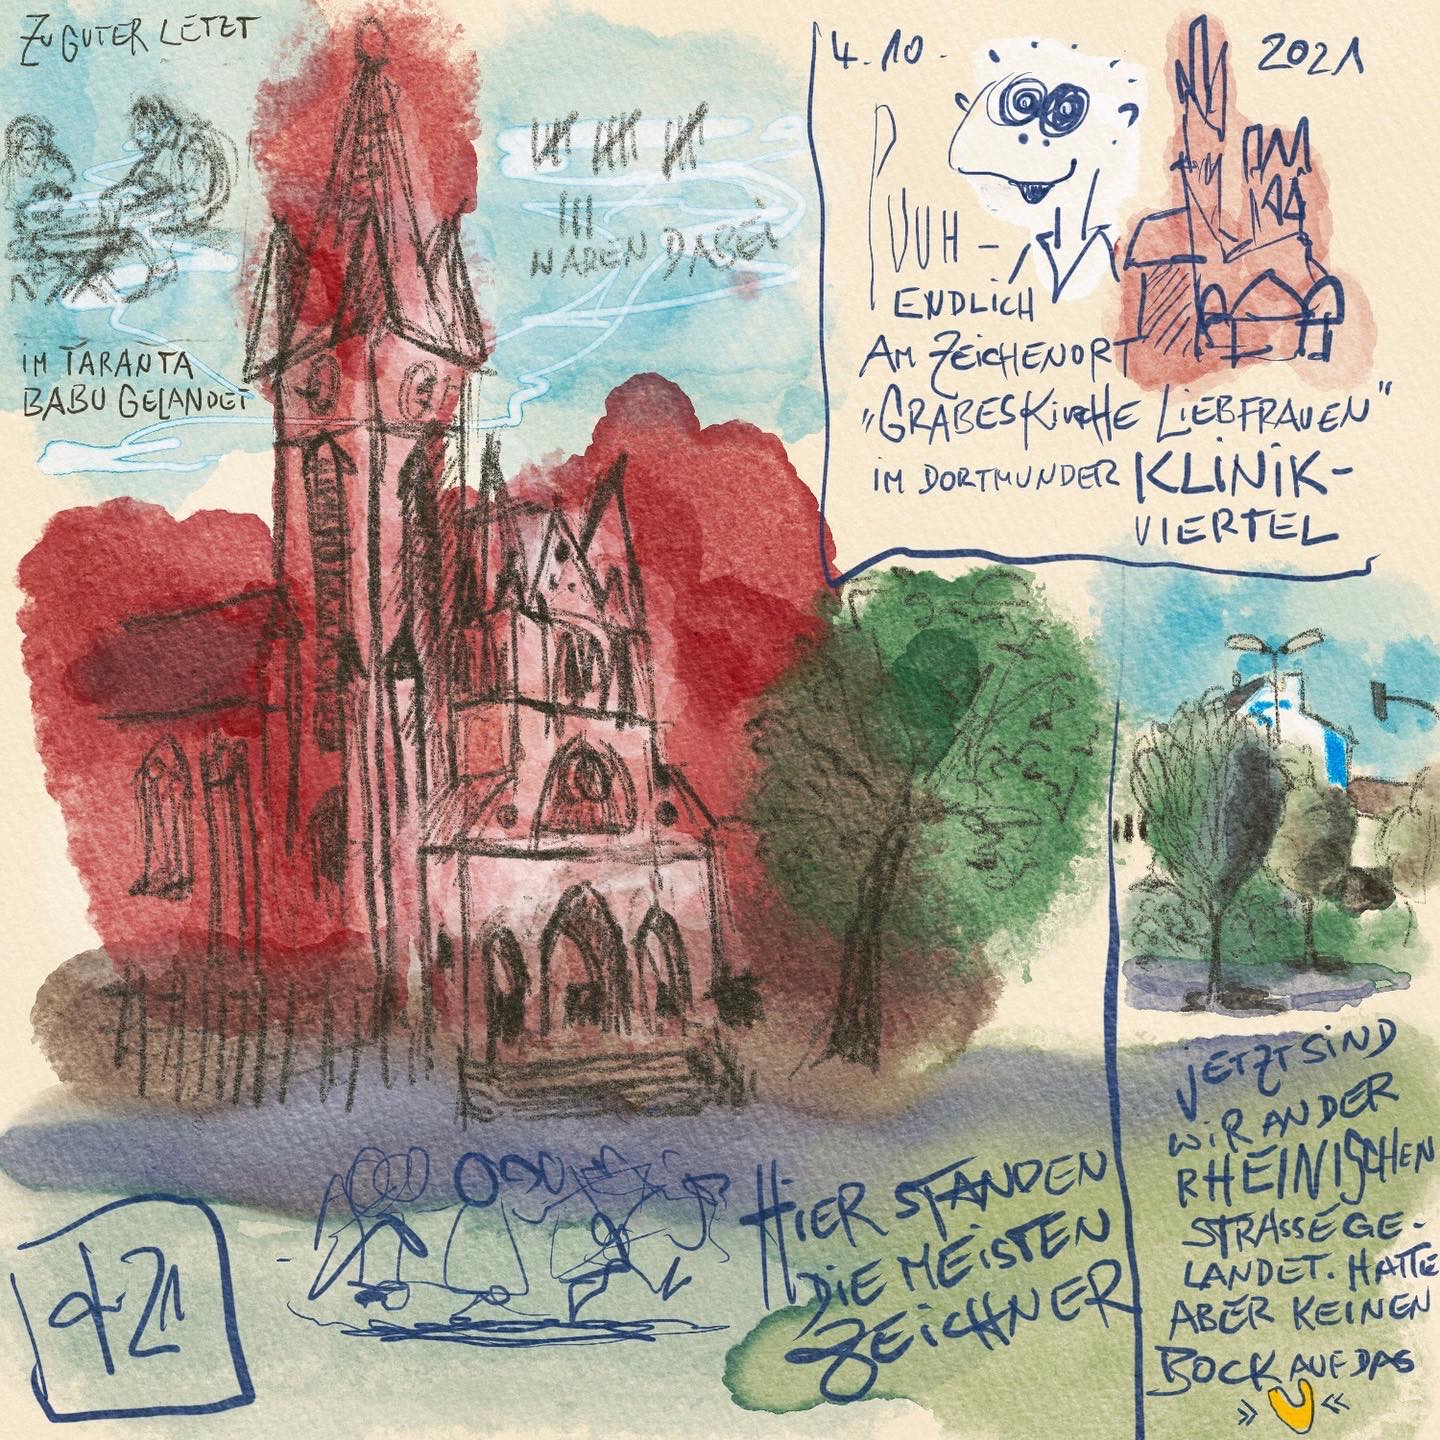 ZU GUTER LETZT
IM TARANTA
BABU GELANDET
WAREN DABEI
4.10.
2021
PUUH -
ENDLICH
AM ZEICHENORT
„GRABESKIRCHE LIEBFRAUEN"
IM DORTMUNDER KLINIK-
VIERTEL
JETZT SIND
WIR AN DER
RHEINISCHEN
STRASSE GE-
LANDET. HATTE
ABER KEINEN
BOCK AUF DAS
» U «
HIER STANDEN
DIE MEISTEN
ZEICHNER
21